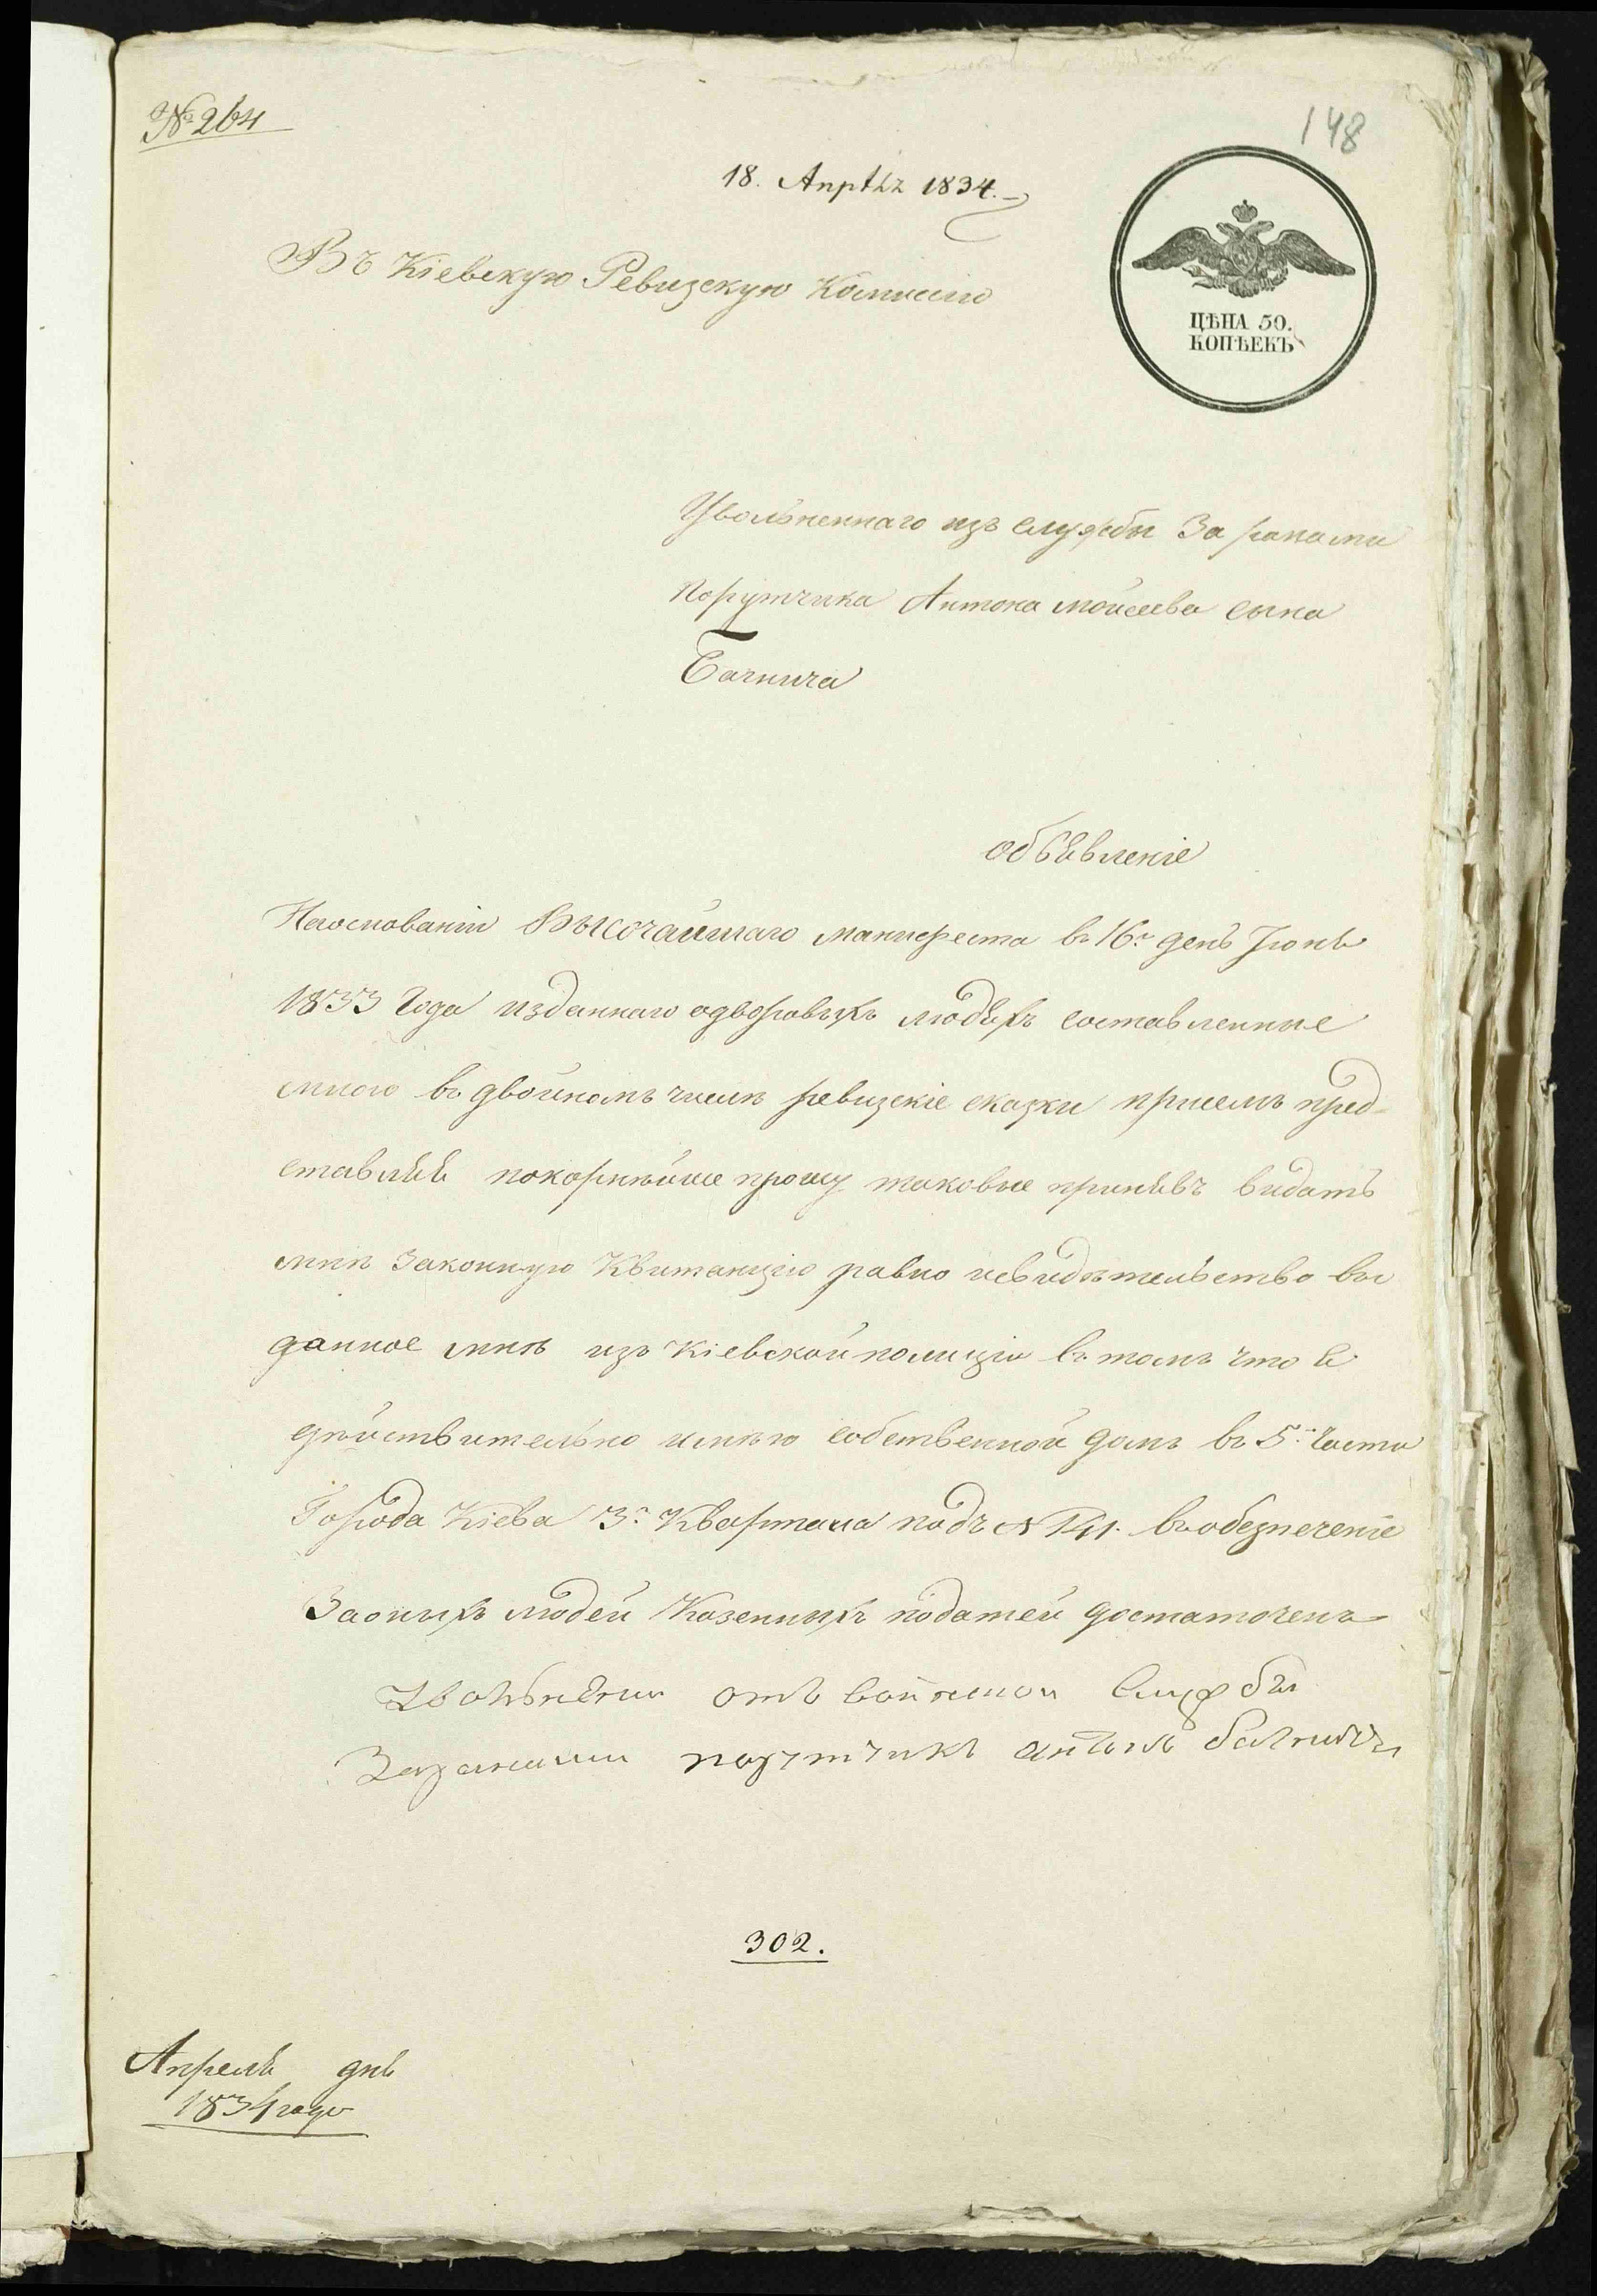 № 264
148
18. Апрѣля 1834.
ЦѢНА 50.
КОПѢЕКЪ
Въ Кіевскую Ревизскую Комисію
Увольненнаго изъ службы За ранами
Порутчика Антона Мойсеева сына
Бачнича
объявленіе
Наоснованіи Высочайшаго манифеста въ 16й день Іюня
1833 Года изданнаго одворовыхъ людяхъ составленные
мною въ двойномъ числѣ ревизскіе сказки присемъ пред-
ставляя покорнѣйше прошу таковые принявъ видать
мнѣ Законную Квитанцію равно исвидѣтельство вы
данное мнѣ изъ Кіевской полиціи въ томъ что я
дѣйствительно имѣю собственной домъ въ 5й Части
Города Кіева 3го Квартала подъ № 141. въ обезпеченіе
Заоныхъ людей Казенныхъ податей достаточенъ
Увольнены отъ войнской Службы
Заранами порутчикъ антонъ бачничъ
302.
Апреля дня
1834 года